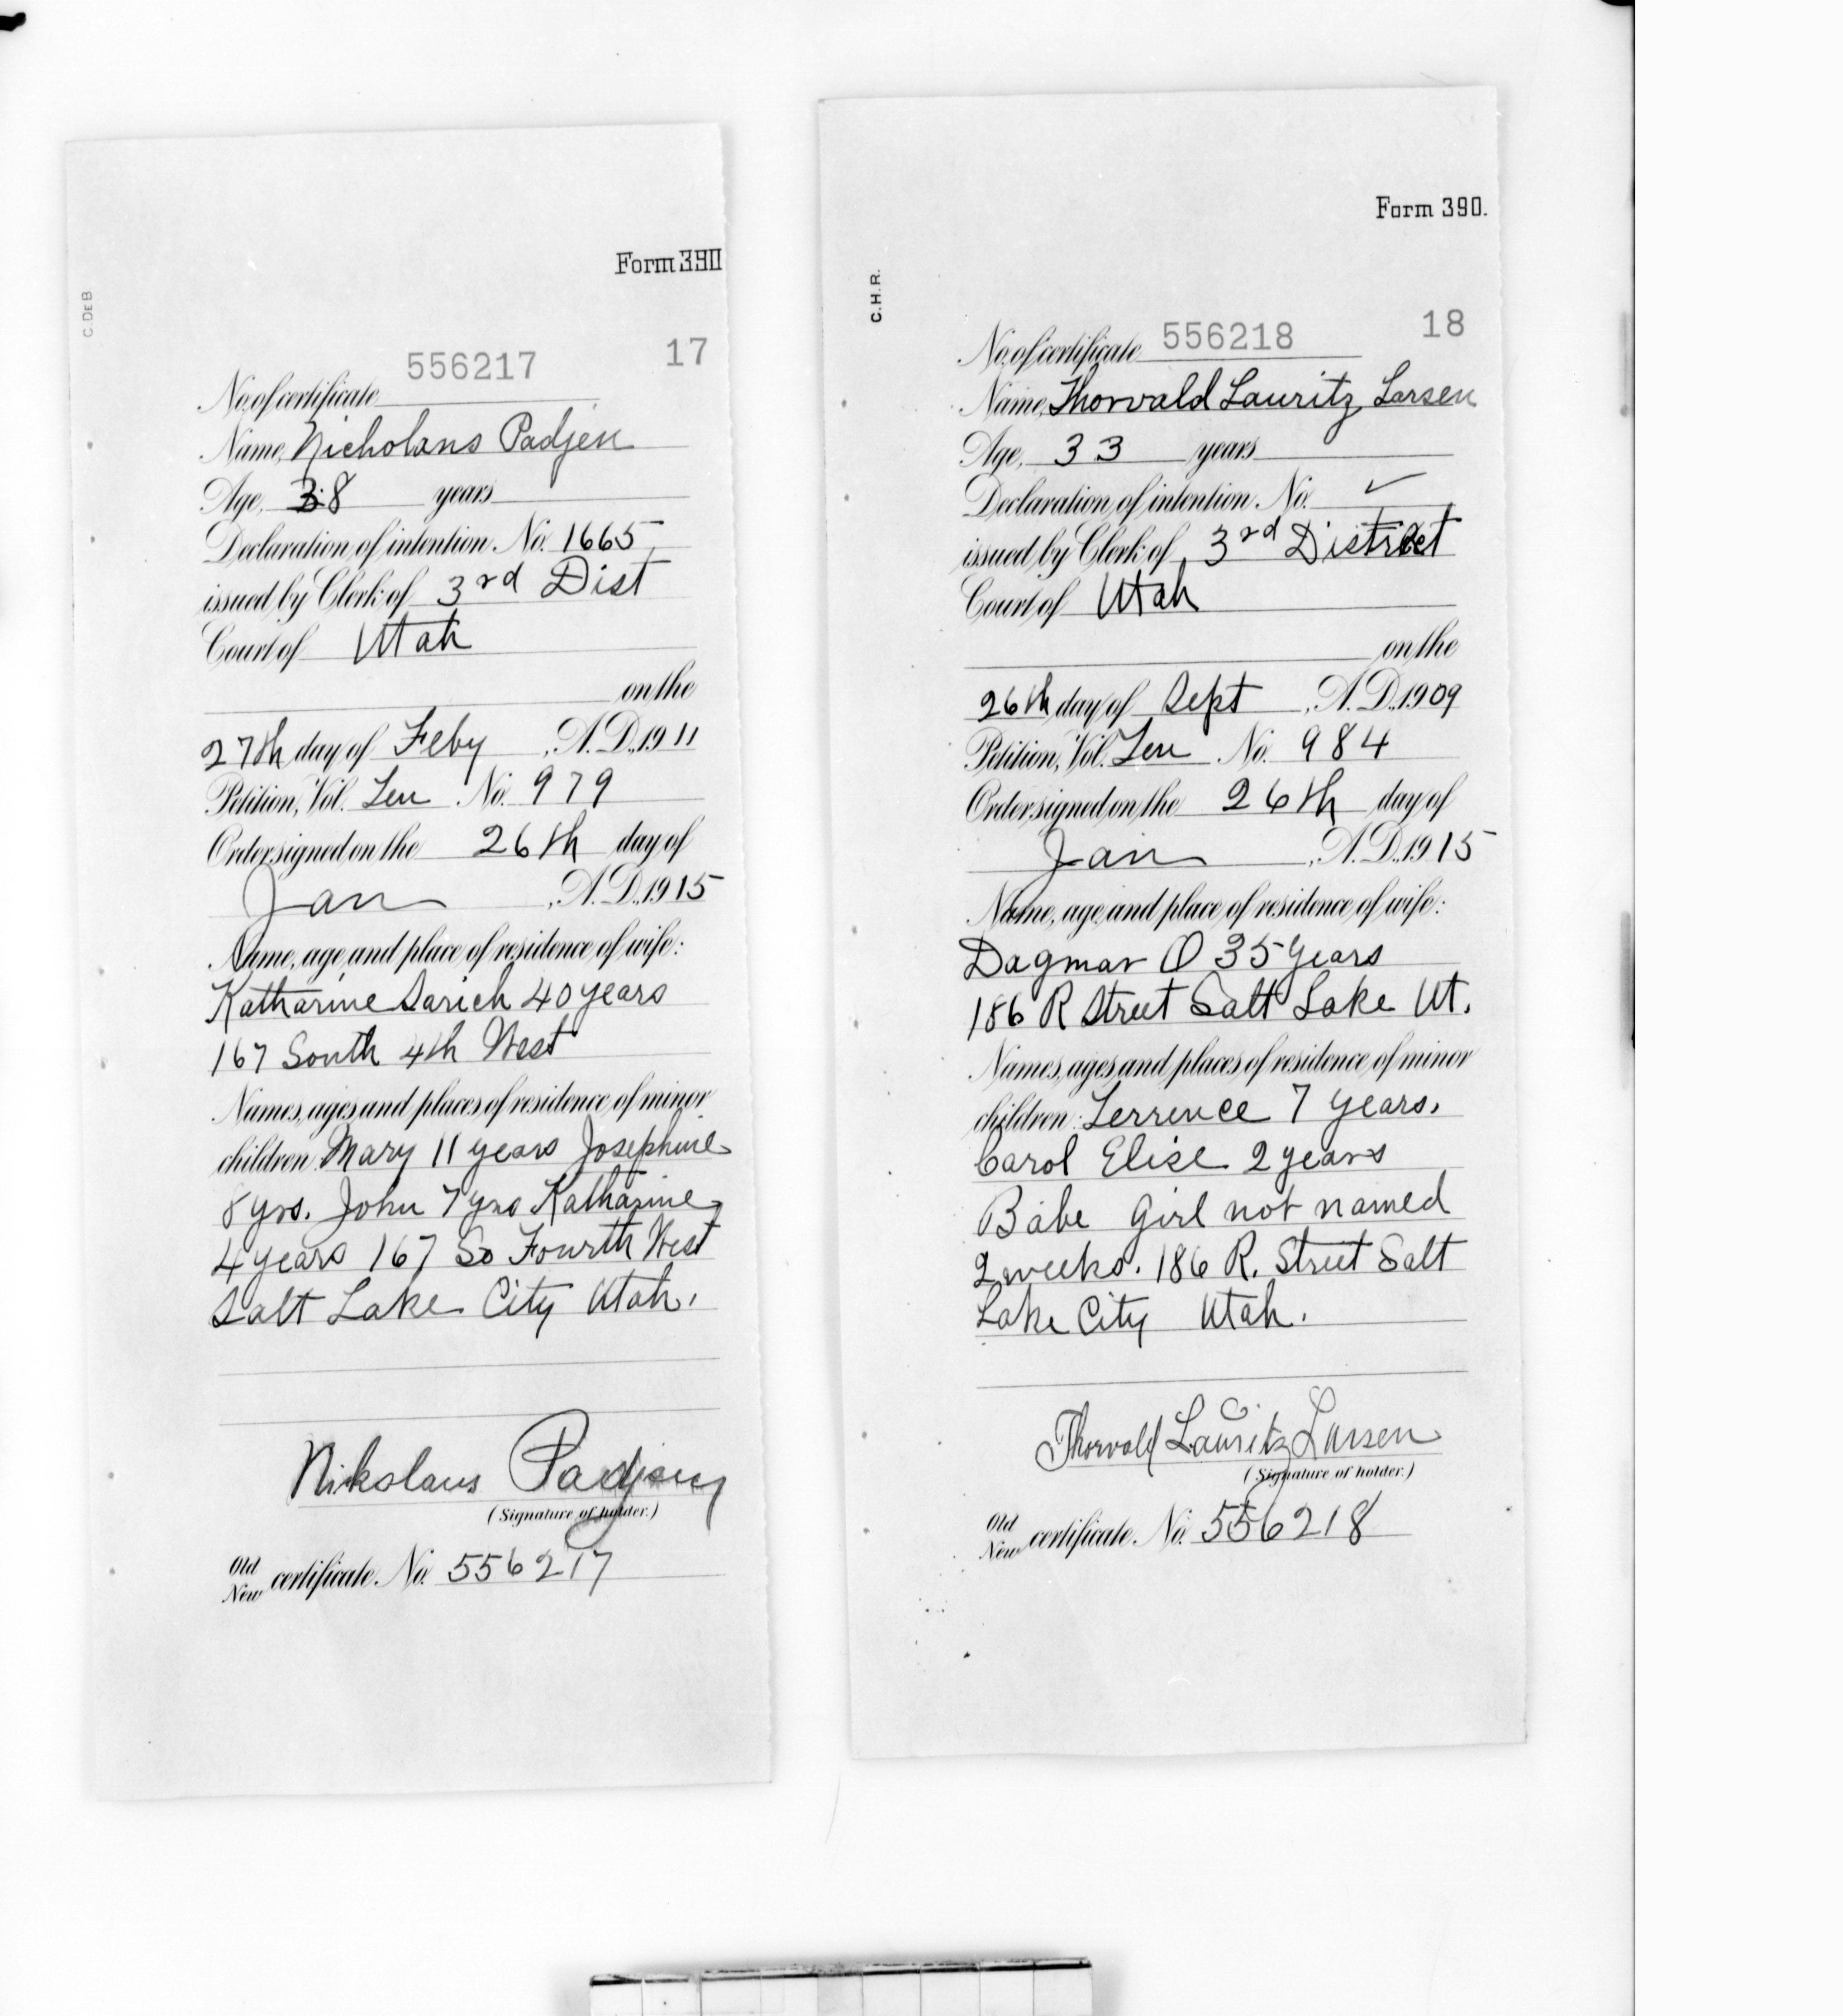 C. DE B
Form 390
556217 17
No. of certificate
Name, Nicholans Padjen
Age, 38 years
Declaration of intention No. 1665
issued by Clerk of 3rd Dist
Court of Utah
on the
27th day of Feby, A.D. 1911
Petition, Vol. Ten No. 979
Order signed on the 26th day of
Jan, A.D. 1915
Name, age, and place of residence of wife:
Katharine Sarich 40 years
167 South 4th West
Names, ages, and places of residence of minor
children: Mary 11 years Josephine
8 yrs. John 7 yrs Katharine
4 years 167 So Fourth West
Salt Lake City Utah.
Nikolaus
(Signature of holder.)
Old
New certificate No. 556217
C.H.R.
Form 390.
No. of certificate 556218 18
Name, Thorvald Lauritz Larsen
Age, 33 years
Declaration of intention No. ✓
issued by Clerk of 3rd District
Court of Utah
on the
26th day of Sept, A.D. 1909
Petition, Vol. Ten No. 984
Order signed on the 26th day of
Jan, A.D. 1915
Name, age, and place of residence of wife:
Dagmar O 35 Years
186 R Street Salt Lake Ut.
Names, ages, and places of residence of minor
children: Terrence 7 years.
Carol Elise 2 years
Babe Girl not named
2 weeks. 186 R. Street Salt
Lake City Utah.
Thorvald Lauritz Larsen
(Signature of holder.)
Old
New certificate No. 556218